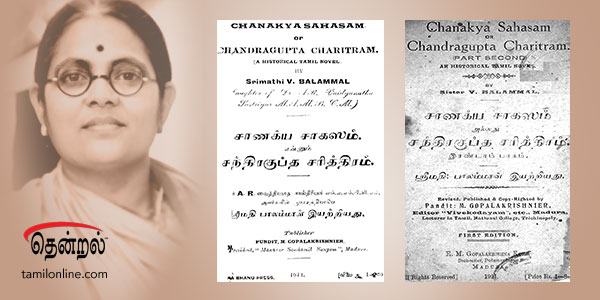 தென்றல்
tamilonline.com
CHANAKYA SAHASAM
OR
CHANDRAGUPTA CHARITRAM.
(A HISTORICAL TAMIL NOVEL
BY
Srimathi V. BALAMMAL
M. A. M. B. C. M.)
சாணக்ய சாகஸம்
என்னும்
சந்திரகுப்த சரித்திரம்.
A. R.
ஸ்ரீமதி பாலம்மாள் இயற்றியது.
Publisher
PUNDIT, M. GOPALAKRISHNIER,
President, "Madura
Chanakya Sahasam
OR
Chandragupta Charitram.
PART SECOND
AN HISTORICAL TAMIL NOVEL
BY
Sister V. BALAMMAL.
சாணக்ய சாகஸம்
அல்லது
சந்திரகுப்த சரித்திரம்.
இரண்டாம் பாகம்.
ஸ்ரீமதி பாலம்மாள் இயற்றியது.
Revised, Published & Copy-Righted by
Pandit: M. GOPALAKRISHNIER,
Editor "Vivekodayam", etc., Madura,
Lecturer in Tamil, National College, Trichinopoly.
FIRST EDITION.
E. M. GOPALAKRISHNA
MADURA
All Rights Reserved]
[Price Rs.